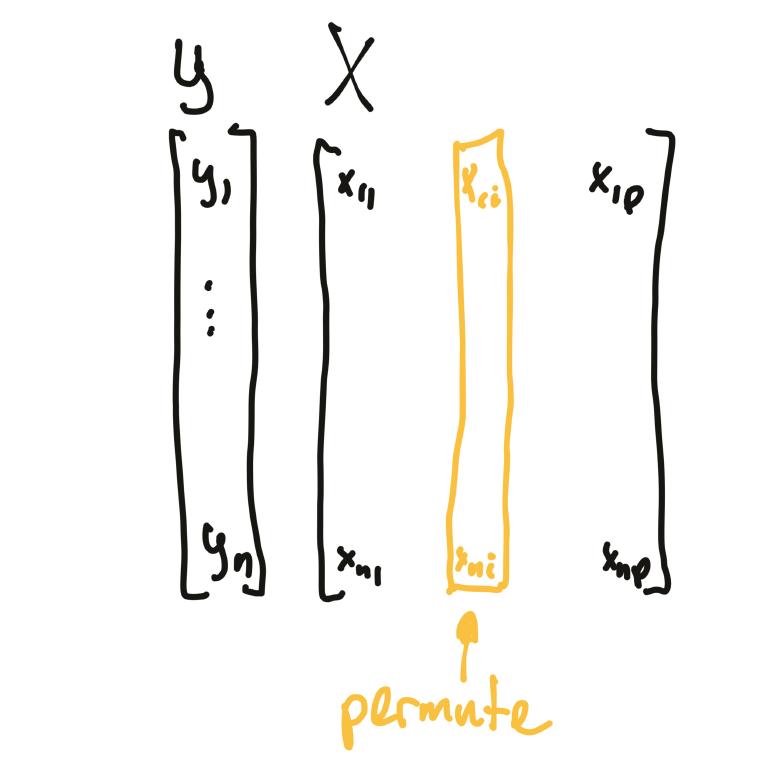 y X
y₁ x₁₁ x₁ᵢ x₁ₚ
⋮
yₙ xₙ₁ xₙᵢ xₙₚ
permute